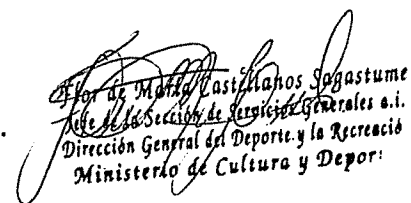 Flor de María Castellanos Sagastume
Jefe de la Sección de Servicios Generales a.i.
Dirección General del Deporte y la Recreació
Ministerio de Cultura y Depor